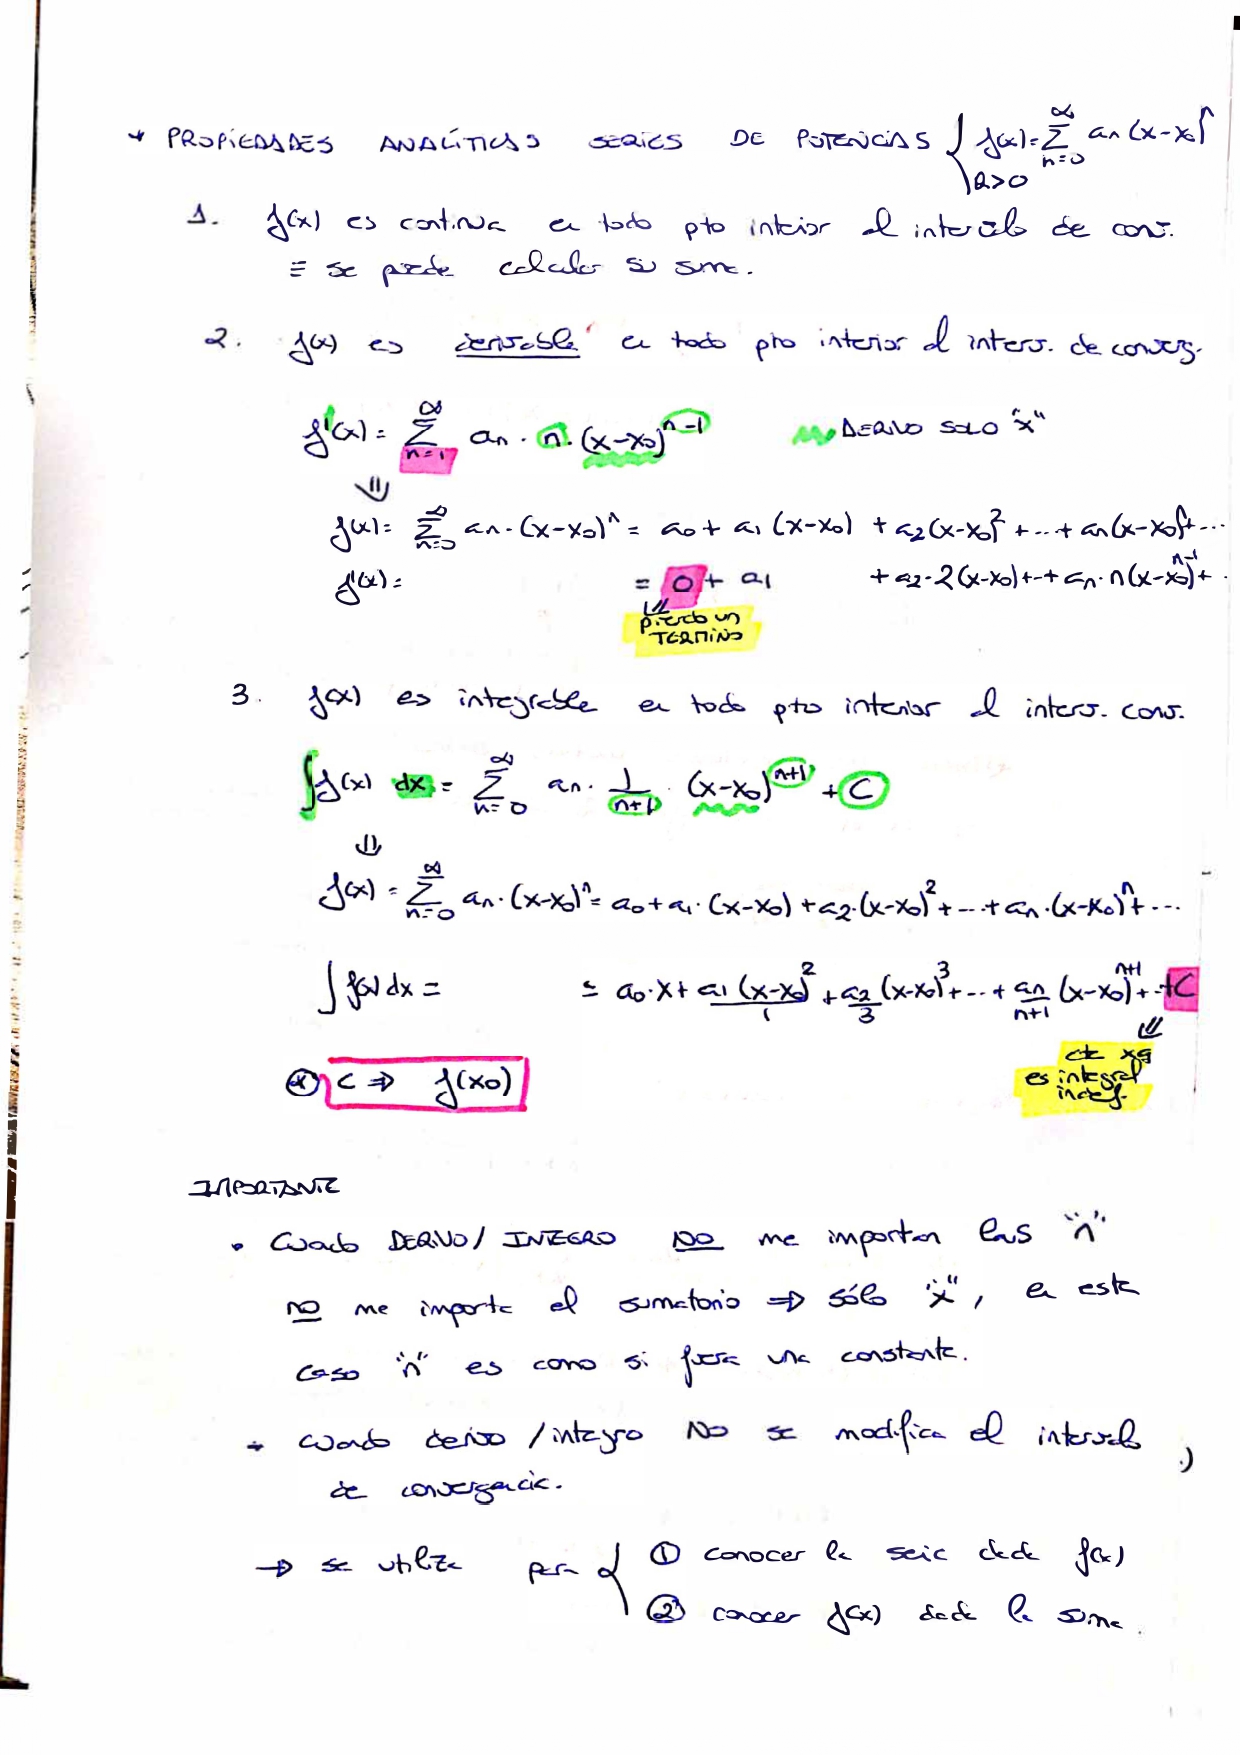 * PROPIEDADES ANALÍTICAS SERIES DE POTENCIAS { f(x) = ∑_{n=0}^{∞} an (x-x0)^n
R>0
1. f(x) es continua en todo pto interior al intervalo de conv.
≡ se puede calcular su suma.
2. f(x) es derivable en todo pto interior al interv. de converg.
f'(x) = ∑_{n=1}^{∞} an · n · (x-x0)^{n-1} DERIVO SOLO "x"
⇓
f(x) = ∑_{n=0}^{∞} an · (x-x0)^n = a0 + a1 (x-x0) + a2 (x-x0)^2 + ... + an (x-x0)^n + ...
f'(x) = = 0 + a1 + a2 · 2(x-x0) + ·· + an · n (x-x0)^{n-1} + ·
⇓
pierdo un
TERMINO
3. f(x) es integrable en todo pto interior al interv. conv.
∫ f(x) dx = ∑_{n=0}^{∞} an · 1/(n+1) · (x-x0)^{n+1} + C
⇓
f(x) = ∑_{n=0}^{∞} an · (x-x0)^n = a0 + a1 · (x-x0) + a2 · (x-x0)^2 + ... + an · (x-x0)^n + ...
∫ f(x) dx = = a0 · x + a1 (x-x0)^2/1 + a2/3 (x-x0)^3 + ... + an/(n+1) (x-x0)^{n+1} + ·· + C
⇓
cte xq
es integral
indef.
* C ⇒ f(x0)
IMPORTANTE
• Cuando DERIVO / INTEGRO NO me importan las "n"
NO me importa el sumatorio ⇒ sólo "x", en este
caso "n" es como si fuera una constante.
• Cuando derivo / integro NO se modifica el intervalo
de convergencia.
→ se utiliza para { ① conocer la serie dada f(x)
② conocer f(x) dada la suma.